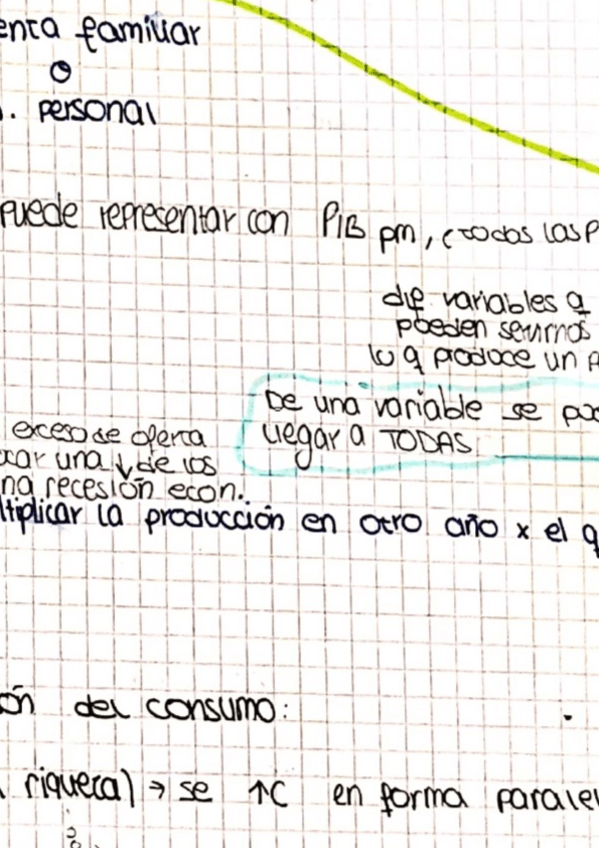 enta familiar
o
. personal
puede representar con PIB pm, (todas las p
dif variables q
pueden servirnos
lo q produce un p
De una variable se pue
llegar a TODAS
exceso de oferta
car una ↓ de los
na recesión econ.
ltiplicar la producción en otro año x el q
ón del consumo:
riqueza) → se ↑C en forma parale